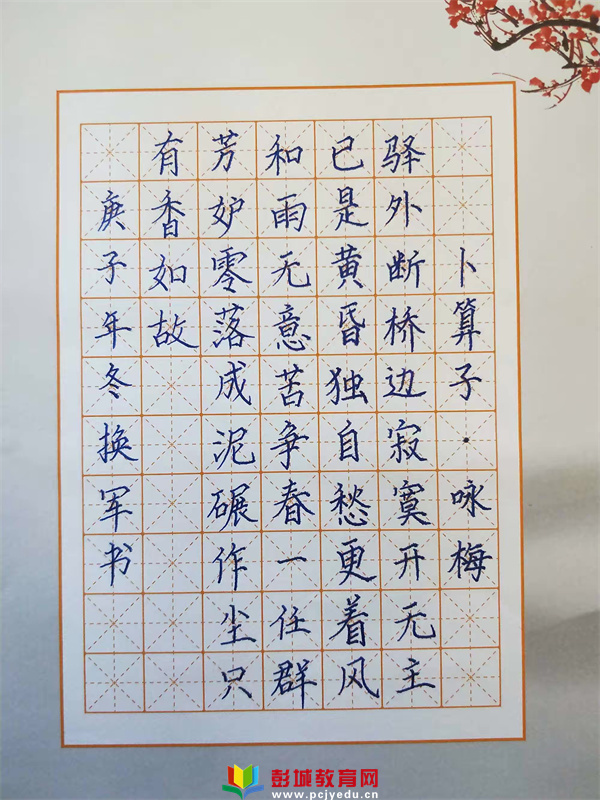 卜算子·咏梅
驿外断桥边寂寞开无主
已是黄昏独自愁更着风
和雨无意苦争春一任群
芳妒零落成泥碾作尘只
有香如故
庚子年冬换军书
彭城教育网
www.pcjyedu.cn